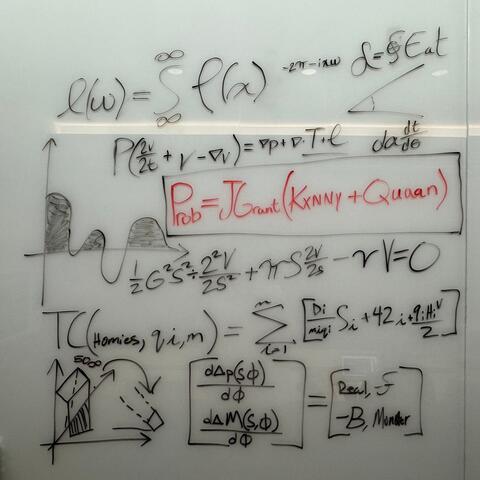 l(w) = ∞∫∞ f(x) -2π-ixw
α = ∮ Eat
da dt/dθ
P(2v/2t + v - ∇v) = ∇p + ∇·T + f
Prob = JGrant(Kxnny + Quaan)
1/2 G²S² ÷ 2²V/2S² + πS 2v/2s - rV = 0
TC(Homies, qi, m) = m∑i=1 [Di/miqi Si + 42 i + qiHiV/2]
50∞
[d∆p(S,ϕ)/dϕ dΔM(S,ϕ)/dϕ] = [Real, -F -B, Monster]